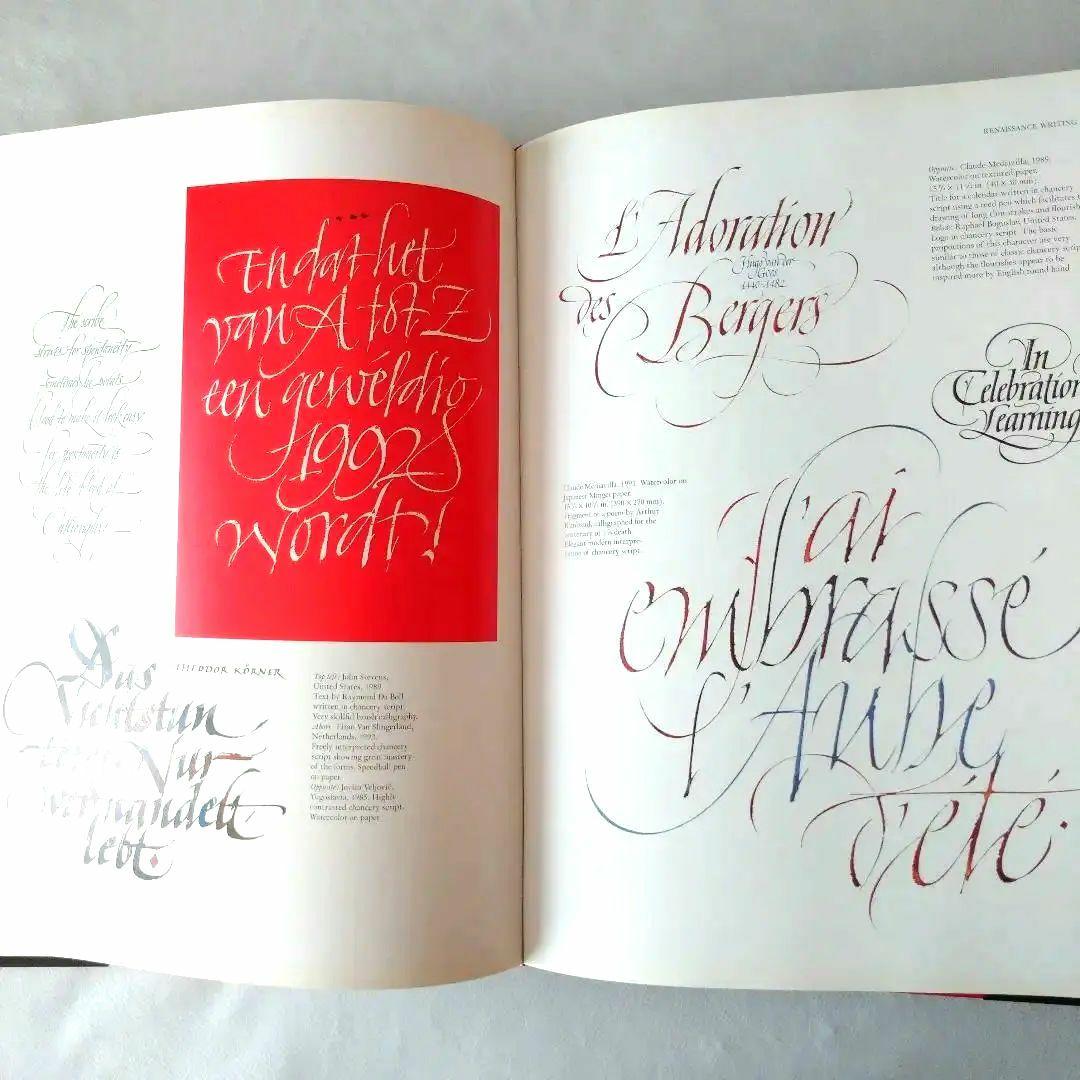 The scribe
strives for spontaneity
calligraphy.
En dat het
van A tot Z
een gewéldig
1992
wordt!
Das
tern Nur-
verwandelt
lebt.
THEODOR KÖRNER
Top left: John Stevens,
United States, 1989.
Text by Raymond Da Boll
written in chancery script.
Very skillful brush calligraphy.
Above: Elran Van Slingerland,
Netherlands, 1992.
Freely interpreted chancery
script showing great mastery
of the forms. Speedball pen
on paper.
Opposite: Jovica Veljović,
Yugoslavia, 1985. Highly
contrasted chancery script.
Watercolor on paper
RENAISSANCE WRITING
Opposite: Claude Mediavilla, 1989.
Watercolor on textured paper.
Title for a calendar written in chancery
script using a reed pen which facilitates
drawing of long thin strokes and flourish
Below: Raphael Boguslav, United States.
Logo in chancery script. The basic
proportions of this character are very
similar to those of classic chancery scrip
although the flourishes appear to be
inspired more by English round hand
L'Adoration
Hugo van der
Goes
1440-1482
des Bergers
In
Celebration
Learning
Claude Mediavilla, 1991. Watercolor on
Japanese Mingei paper.
Fragment of a poem by Arthur
Rimbaud, calligraphed for the
centenary of his death.
Elegant modern interpre-
tation of chancery script.
J'ai
embrassé
l'Aube
d'été.